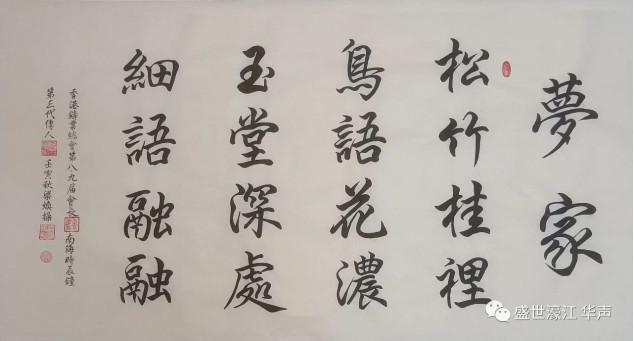 夢家
松竹桂裡
鳥語花濃
玉堂深處
細語融融
香港鐘業總會第八九届會長南海時辰鐘
第三代傳人 壬寅秋梁煥操
盛世濠江 华声